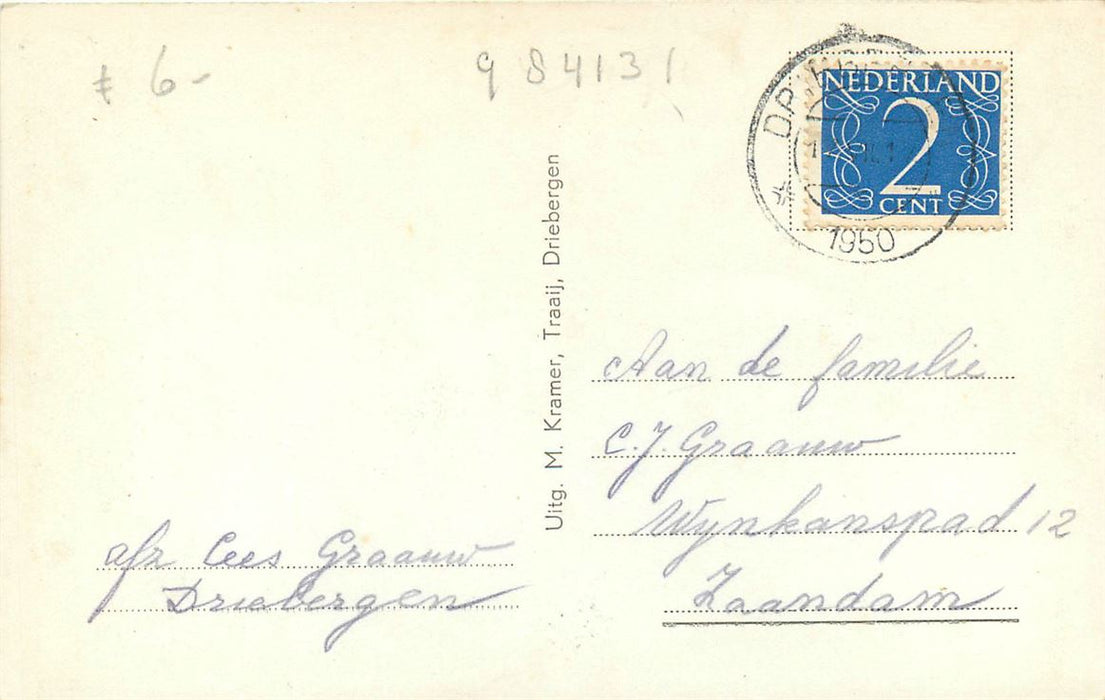 ƒ 6-
984131
NEDERLAND
2
CENT
1950
Uitg. M. Kramer, Traaij, Driebergen
Aan de familie
C.J. Graauw
Wijnkanspad 12
Zaandam
afz Cees Graauw
Driebergen